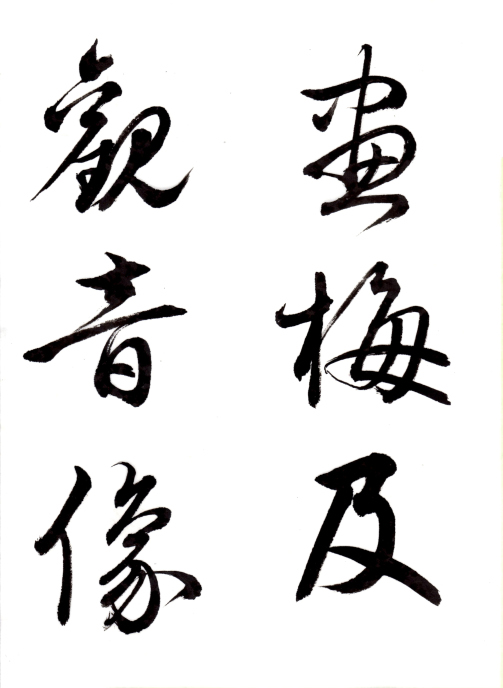 畫梅及
觀音像